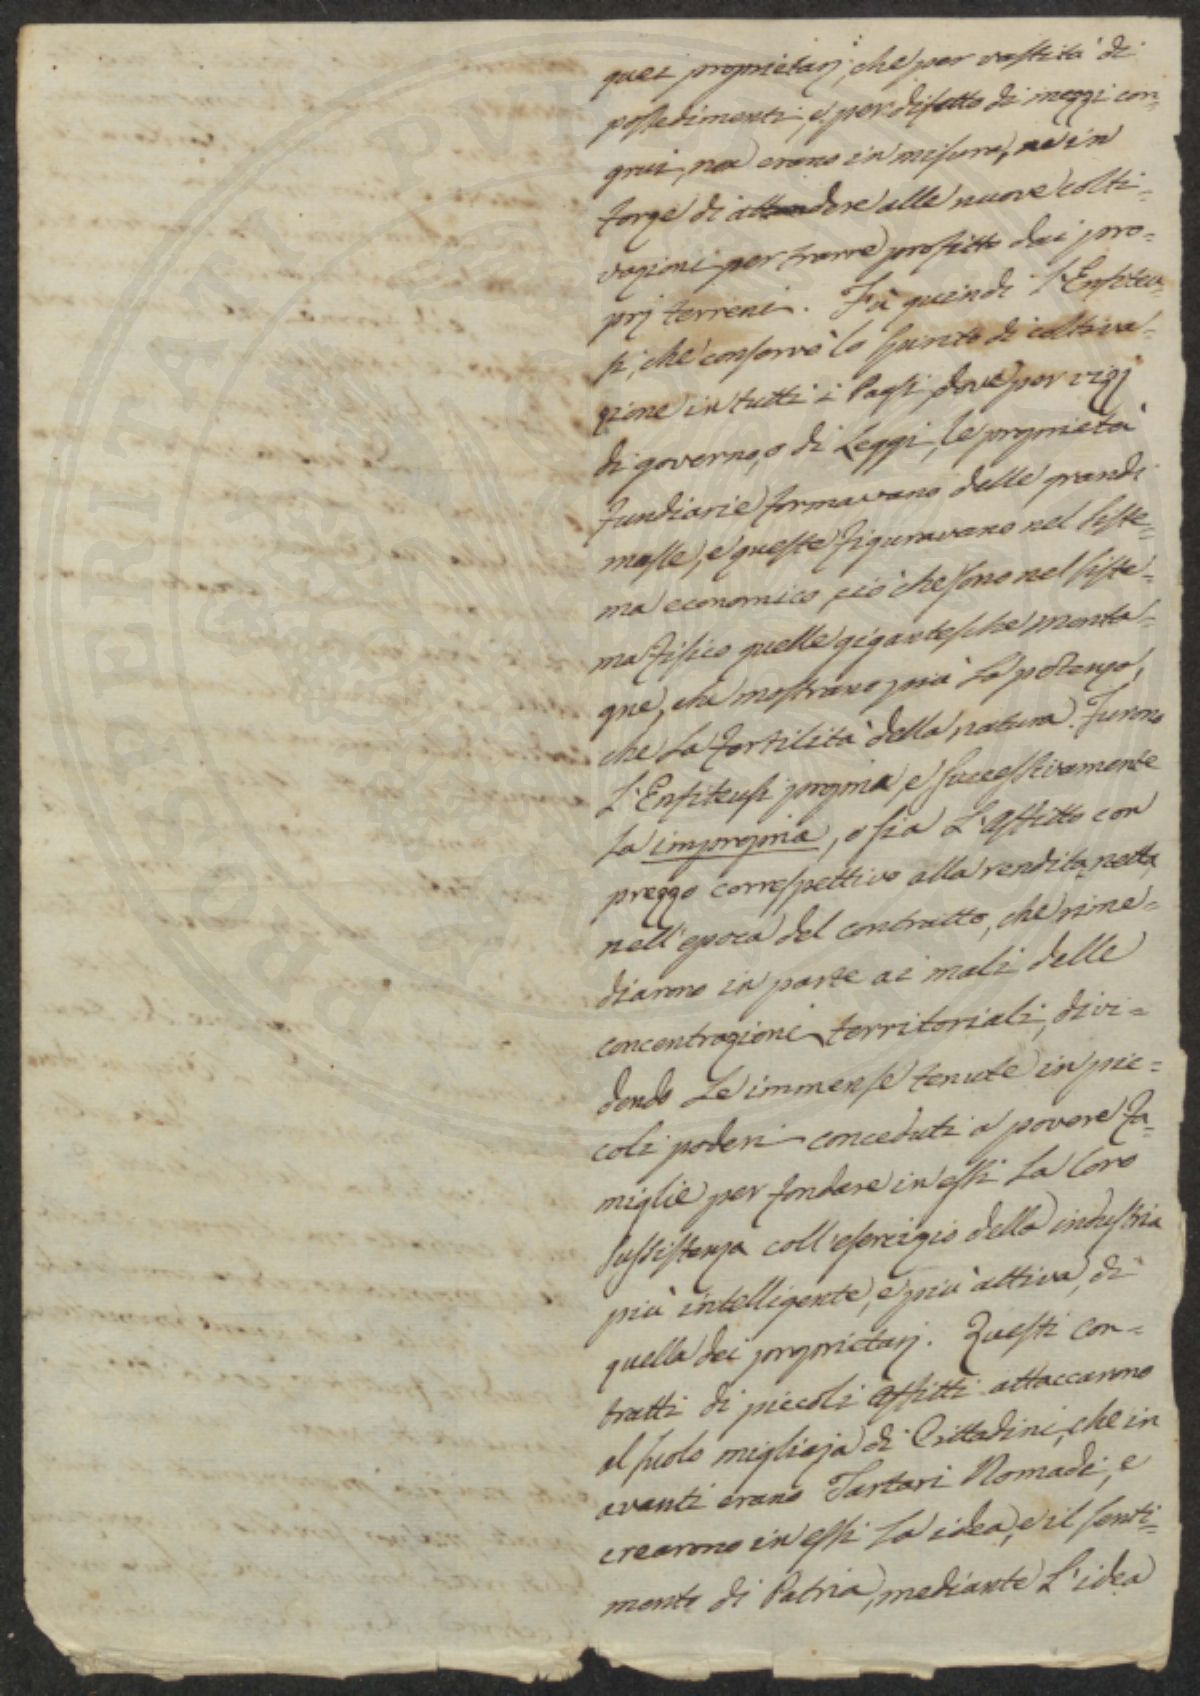 quei proprietarj, che per vastità di
possedimenti, e per difetto di mezzi con-
grui, non erano in misura, nè in
forze di attendere alle nuove colti-
vazioni per trarre profitto dai pro-
prj terreni. Fù quindi l'Enfiteu-
si, che conservò lo spirito di coltiva-
zione in tutti i Paesi dove per vizj
di governo, o di Leggi, le proprietà
fundiarie formavano delle grandi
masse, e queste figuravano nel siste-
ma economico, ciò che sono nel siste-
ma fisico quelle gigantesche monta-
gne, che mostrano più la potenza,
che la fertilità della natura. Furono
l'Enfiteusi propria, e successivamente
la impropria, o sia l'affitto con
prezzo correspettivo alla rendita netta
nell'epoca del contratto, che rime-
diarono in parte ai mali delle
concentrazioni territoriali, divi-
dendo le immense tenute in pic-
coli poderi conceduti a povere fa-
miglie per fondare in essi la loro
sussistenza coll'esercizio della industria
più intelligente, e più attiva, di
quella dei proprietarj. Questi con-
tratti di piccoli affitti attaccarono
al suolo migliaja di Cittadini, che in
avanti erano Tartari Nomadi, e
crearono in essi la idea, e il senti-
mento di Patria, mediante l'idea